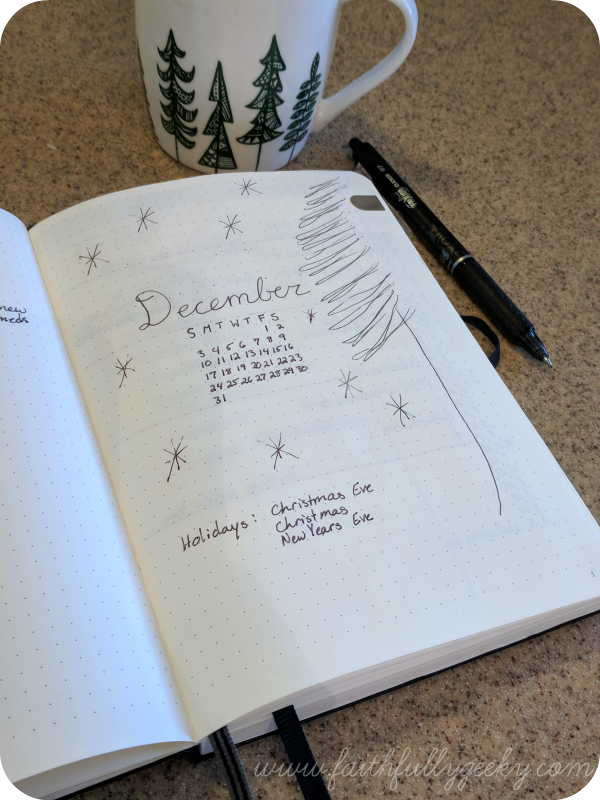 new
meds
December
S M T W T F S
1 2
3 4 5 6 7 8 9
10 11 12 13 14 15 16
17 18 19 20 21 22 23
24 25 26 27 28 29 30
31
Holidays: Christmas Eve
Christmas
New Years Eve
www.faithfullygeeky.com